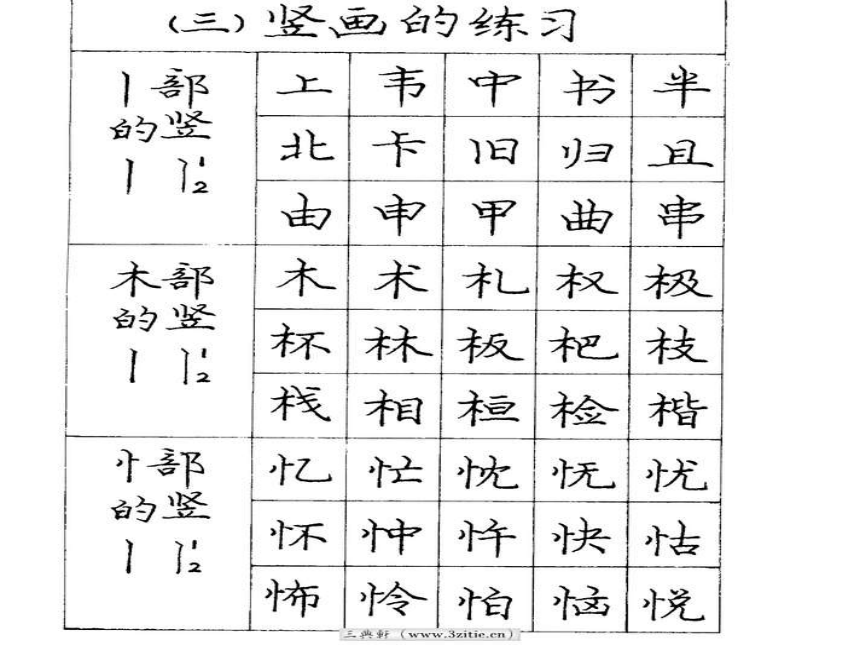 (三)竖画的练习
丨部的竖
上 韦 中 书 半
北 卡 旧 归 且
由 申 甲 曲 串
木部的竖
木 术 札 权 极
杯 林 板 杷 枝
栈 相 桓 检 楷
忄部的竖
忆 忙 忱 怃 忧
怀 忡 忤 快 怙
怖 怜 怕 恼 悦
三典軒(www.3zitie.cn)